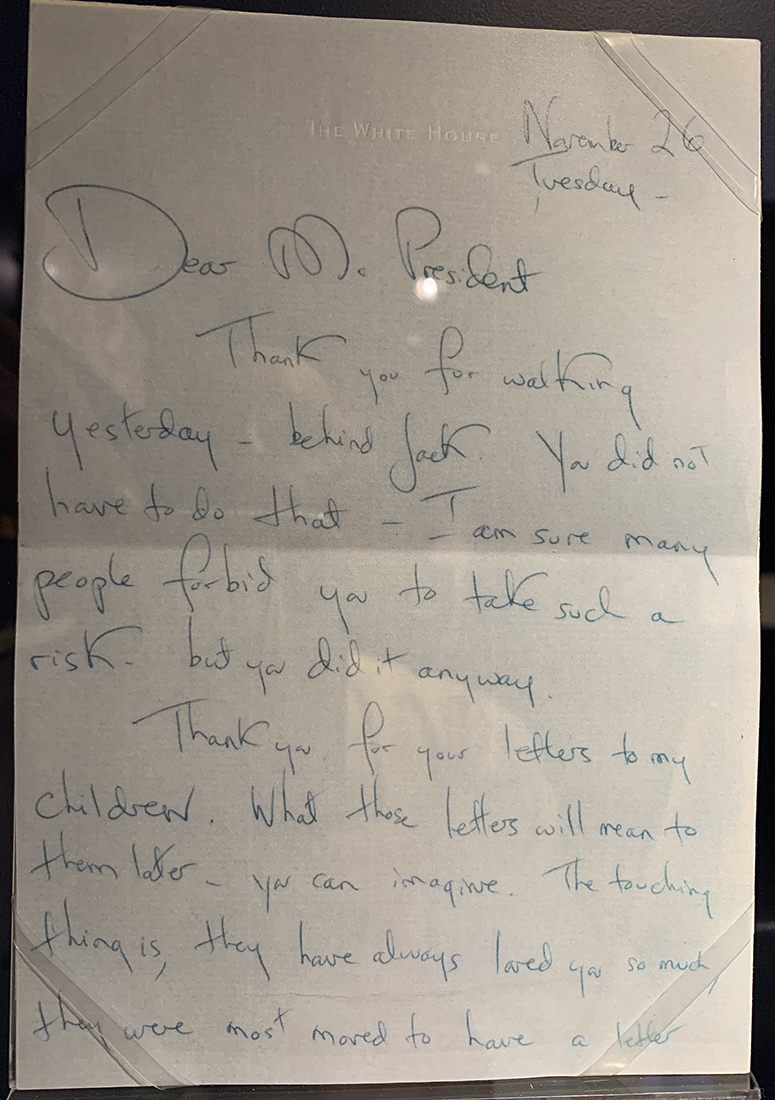 THE WHITE HOUSE
November 26
Tuesday -
Dear Mr. President
Thank you for walking
yesterday - behind Jack. You did not
have to do that - I am sure many
people forbid you to take such a
risk - but you did it anyway.
Thank you for your letters to my
children. What those letters will mean to
them later - you can imagine. The touching
thing is, they have always loved you so much,
they were most moved to have a letter